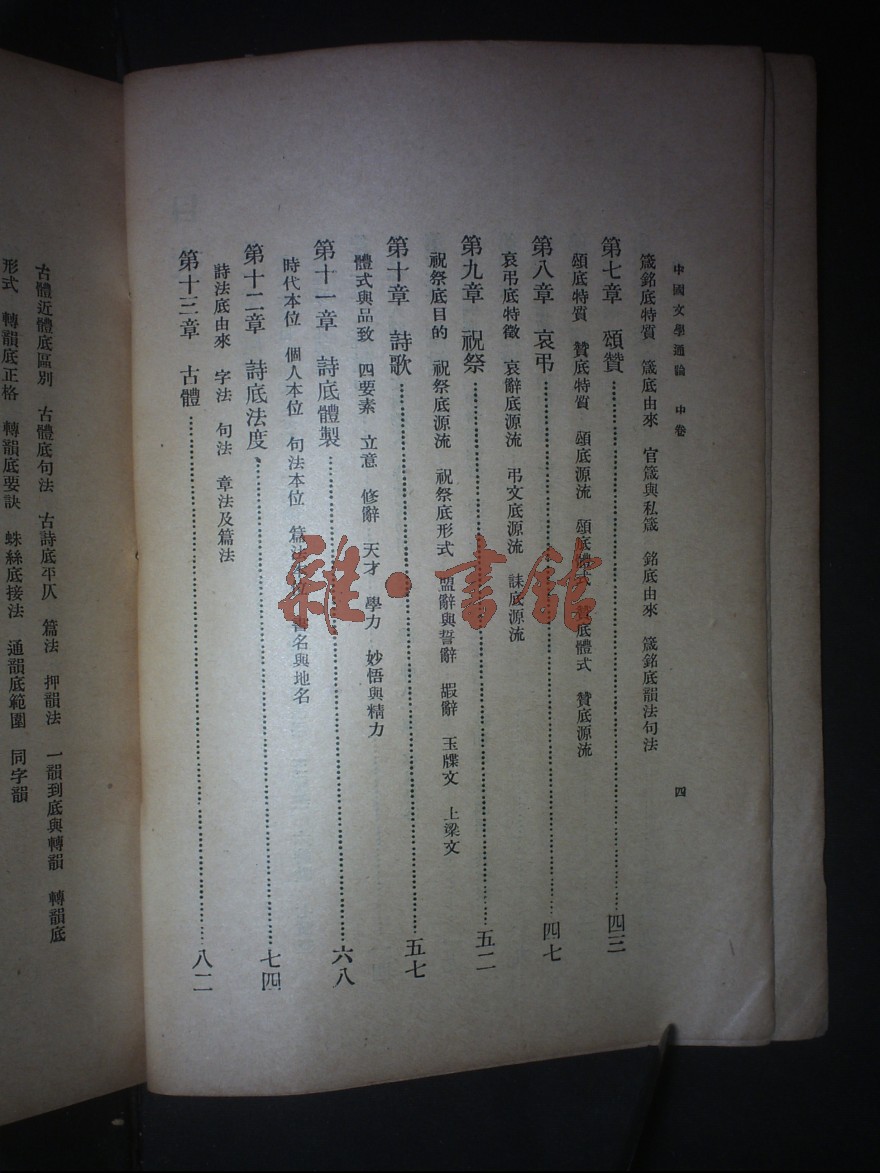 中國文學通論　中卷　四
箴銘底特質　箴底由來　官箴與私箴　銘底由來　箴銘底韻法句法
第七章　頌贊…………四三
頌底特質　贊底特質　頌底源流　頌底體式　贊底體式　贊底源流
第八章　哀弔…………四七
哀弔底特徵　哀辭底源流　弔文底源流　誄底源流
第九章　祝祭…………五二
祝祭底目的　祝祭底源流　祝祭底形式　盟辭與誓辭　嘏辭　玉牒文　上梁文
第十章　詩歌…………五七
體式與品致　四要素　立意　修辭　天才　學力　妙悟與精力
第十一章　詩底體製…………六八
時代本位　個人本位　句法本位　篇法本位　書名與地名
第十二章　詩底法度…………七四
詩法底由來　字法　句法　章法及篇法
第十三章　古體…………八二
古體近體底區別　古體底句法　古詩底平仄　篇法　押韻法　一韻到底與轉韻　轉韻底
形式　轉韻底正格　轉韻底要訣　蛛絲底接法　通韻底範圍　同字韻
雜·書館